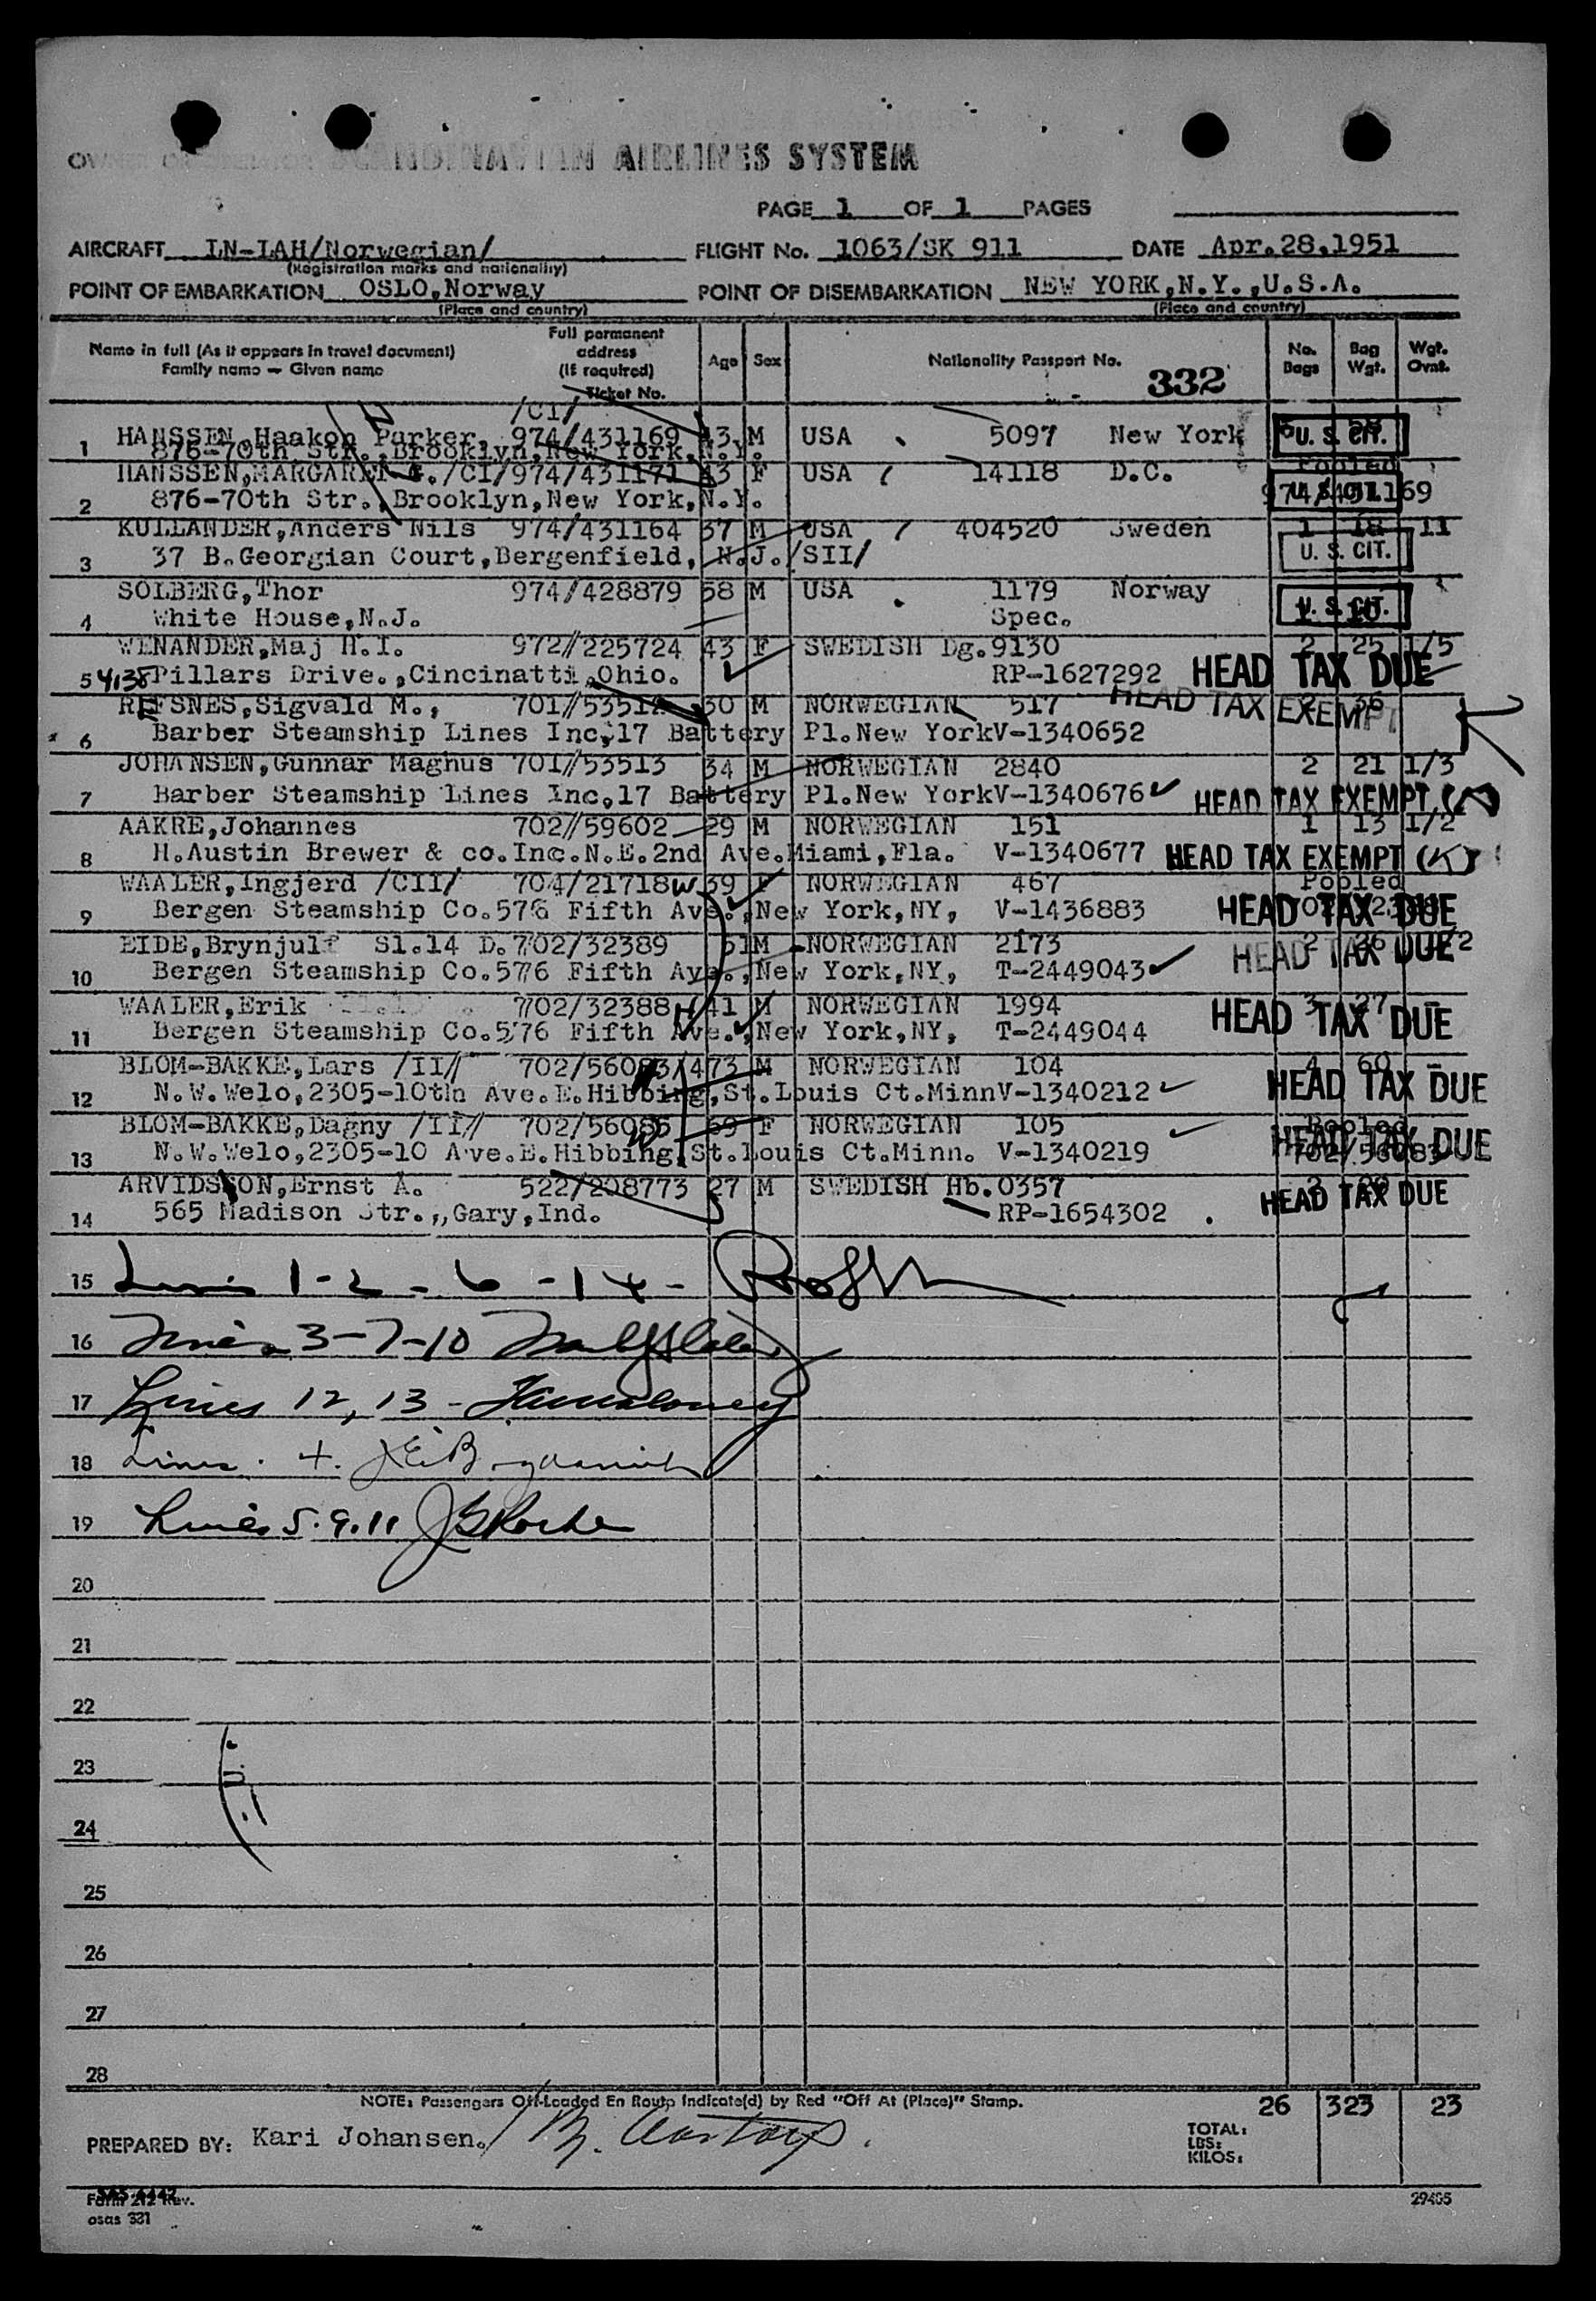 SCANDINAVIAN AIRLINES SYSTEM
PAGE 1 OF 1 PAGES
AIRCRAFT LN-IAH/Norwegian/ FLIGHT No. 1063/SK 911 DATE Apr.28,1951
(Registration marks and nationality)
POINT OF EMBARKATION OSLO,Norway POINT OF DISEMBARKATION NEW YORK,N.Y.,U.S.A.
(Place and country) (Place and country)
Name in full (As it appears in travel document) Family name — Given name Full permanent address (If required) Ticket No. Age Sex Nationality Passport No. 332 No. Bags Bag Wgt. Wgt. Ovnt.
/CI/
HANSSEN,Haakon Parker, 974/431169 43 M USA 5097 New York U. S. CIT.
1 876-70th Str.,Brooklyn,New York,N.Y.
HANSSEN,MARGARET /CI/974/431171 43 F USA 14118 D.C. Pooled
2 876-70th Str.,Brooklyn,New York,N.Y. 974/431169
KULLANDER,Anders Nils 974/431164 37 M USA 404520 Sweden 1 18 11
3 37 B.Georgian Court,Bergenfield, N.J./SII/ U. S. CIT.
SOLBERG,Thor 974/428879 58 M USA 1179 Norway
4 White House,N.J. Spec. U. S. CIT.
WENANDER,Maj H.I. 972//225724 43 F SWEDISH Dg.9130 2 25 1/5
5 4138 Pillars Drive.,Cincinatti,Ohio. RP-1627292 HEAD TAX DUE
REFSNES,Sigvald M., 701//53512 30 M NORWEGIAN 517 HEAD TAX EXEMPT 2 36
6 Barber Steamship Lines Inc,17 Battery Pl.New YorkV-1340652
JOHANSEN,Gunnar Magnus 701//53513 34 M NORWEGIAN 2840 2 21 1/3
7 Barber Steamship Lines Inc,17 Battery Pl.New YorkV-1340676 HEAD TAX EXEMPT
AAKRE,Johannes 702//59602 29 M NORWEGIAN 151 1 13 1/2
8 H.Austin Brewer & co.Inc.N.E.2nd Ave.Miami,Fla. V-1340677 HEAD TAX EXEMPT (K)
WAALER,Ingjerd /CII/ 704/21718 W 39 F NORWEGIAN 467 Pooled
9 Bergen Steamship Co.576 Fifth Ave.,New York,NY, V-1436883 HEAD TAX DUE
EIDE,Brynjulf Sl.14 D.702/32389 51 M NORWEGIAN 2173 2 26 1/2
10 Bergen Steamship Co.576 Fifth Ave.,New York,NY, T-2449043 HEAD TAX DUE
WAALER,Erik 702/32388 41 M NORWEGIAN 1994 3 27 -
11 Bergen Steamship Co.576 Fifth Ave.,New York,NY, T-2449044 HEAD TAX DUE
BLOM-BAKKE,Lars /II/ 702/56083/4 73 M NORWEGIAN 104 4 60 -
12 N.W.Welo,2305-10th Ave.E.Hibbing,St.Louis Ct.MinnV-1340212 HEAD TAX DUE
BLOM-BAKKE,Dagny /II/ 702/56085 69 F NORWEGIAN 105 Pooled
13 N.W.Welo,2305-10 Ave.E.Hibbing,St.Louis Ct.Minn. V-1340219 702/56083 HEAD TAX DUE
ARVIDSSON,Ernst A. 522/208773 27 M SWEDISH Hb.0357
14 565 Madison Str.,,Gary,Ind. RP-1654302 HEAD TAX DUE
15 Lines 1-2-6-14-
16 Lines 3-7-10
17 Lines 12, 13 -
18 Lines
19 Lines 5.9.11
20
21
22
23
24
25
26
27
28
NOTE: Passengers Off-Loaded En Route Indicate(d) by Red "Off At (Place)" Stamp. 26 323 23
PREPARED BY: Kari Johansen. TOTAL:
LBS:
KILOS:
Form 212 Rev. 29485
osas 331